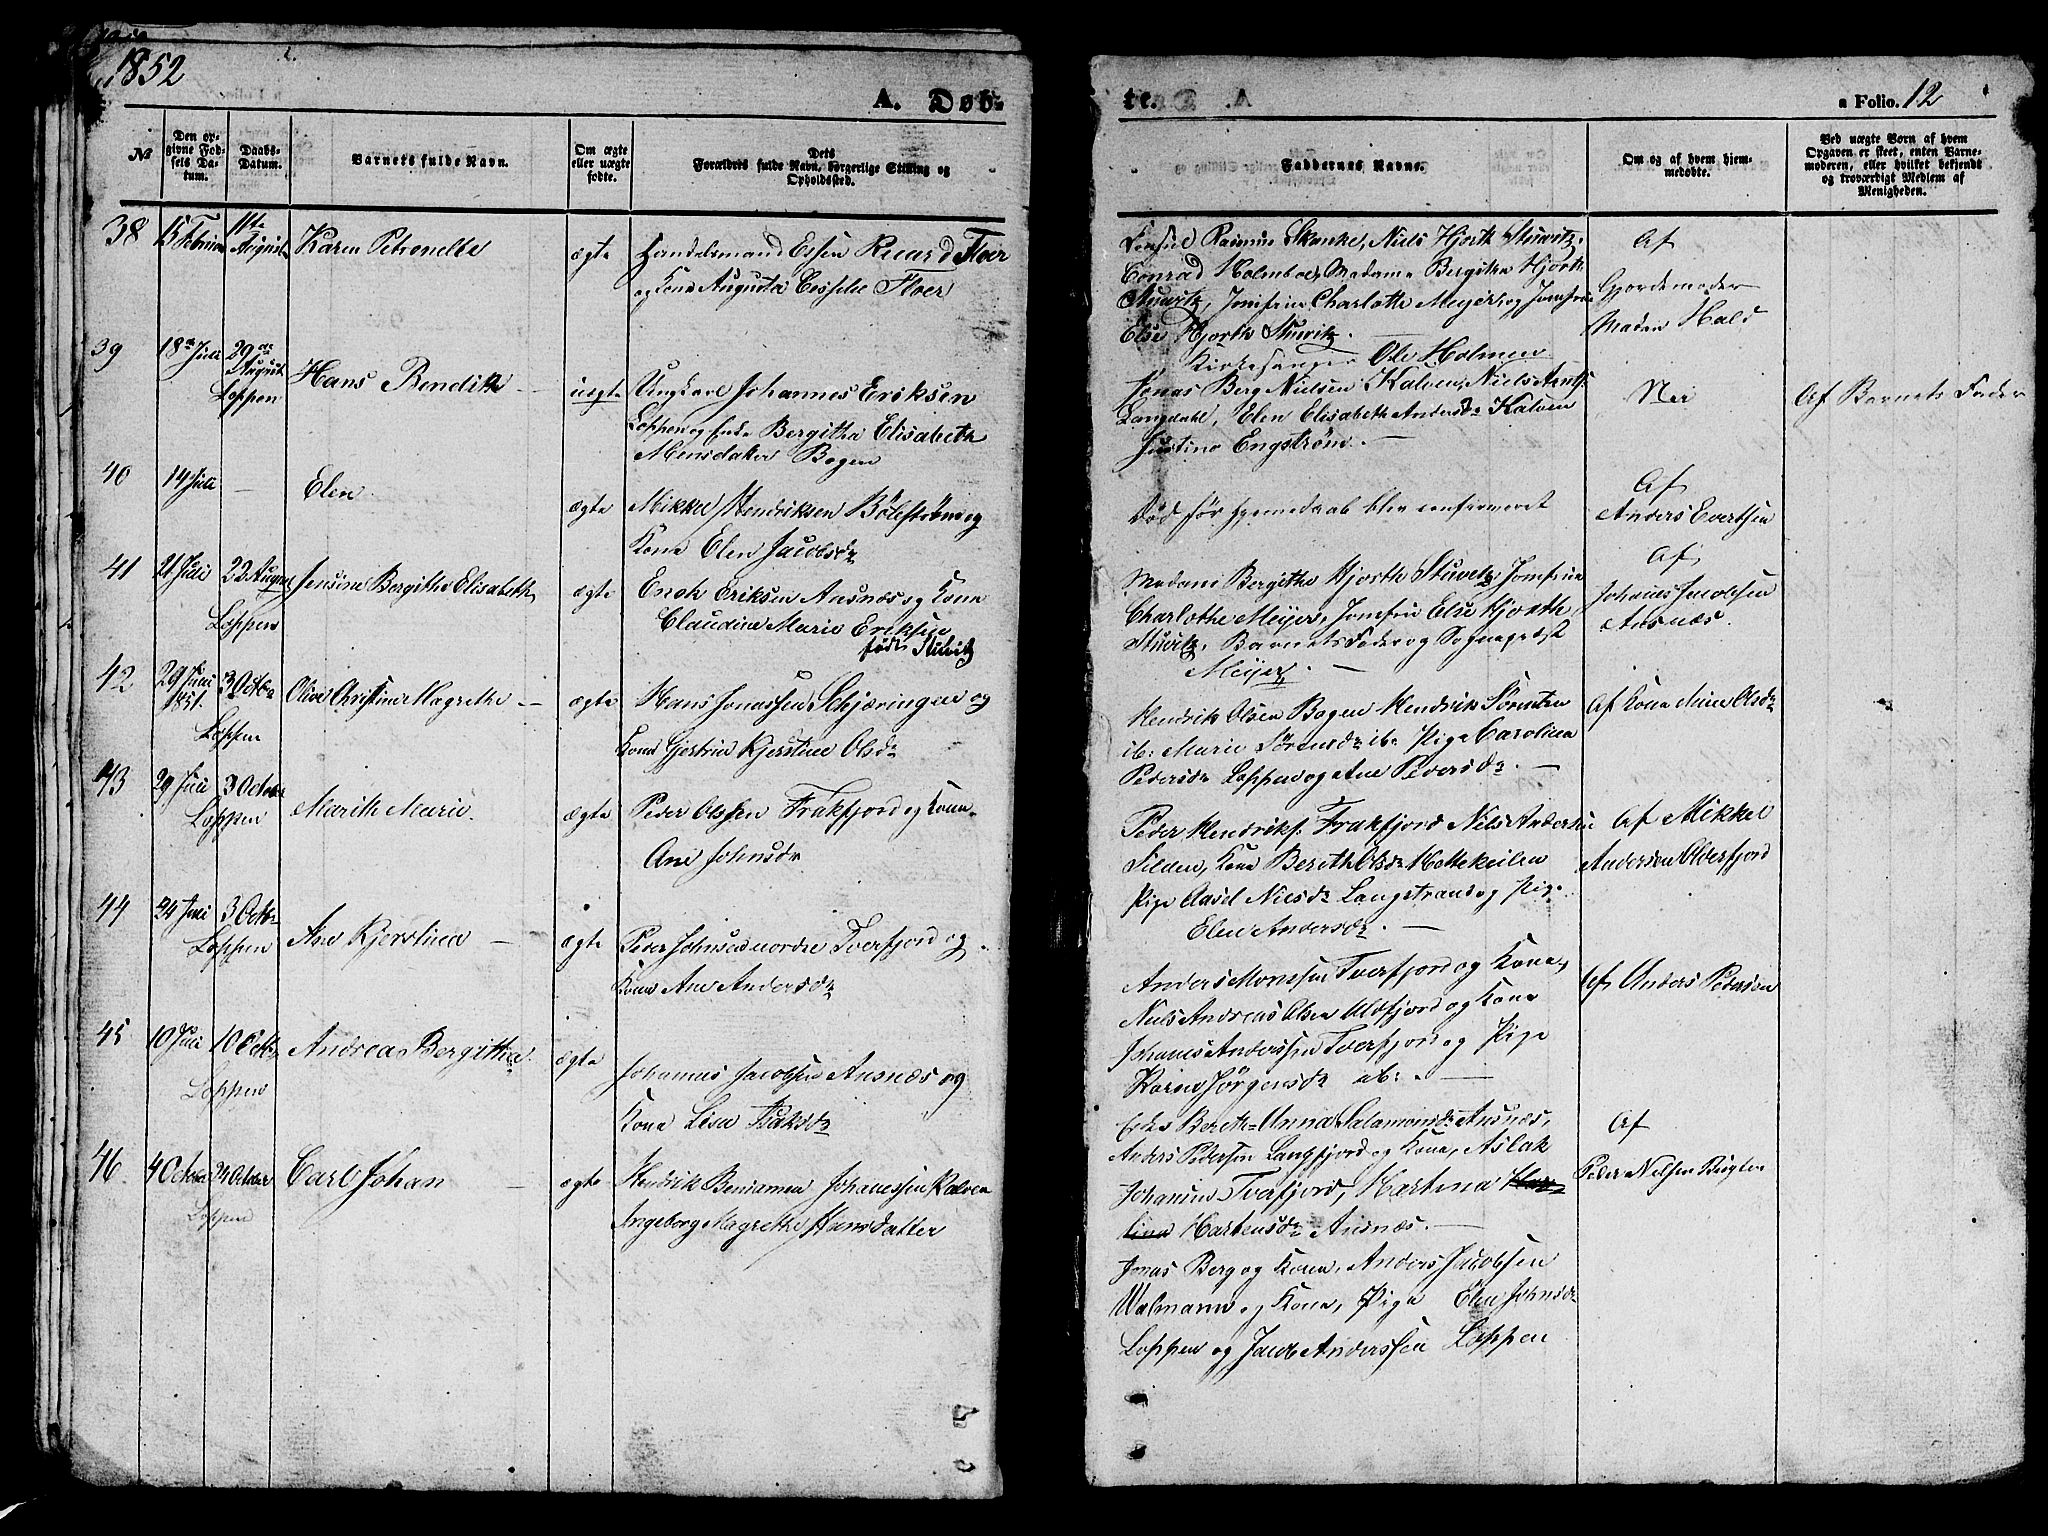 1852
A. Døb-
№
Den op-
givne Fød-
sels Da-
tum.
Daabs-
Datum.
Barnets fulde Navn.
Om ægte
eller uægte
fødte.
Dets
Forældres fulde Navn, borgerlige Stilling og
Opholdssted.
38
15 Februar
11te
August
Karen Petronelle
ægte
Handelsmand Essen Ricard Floer
og Kone Augusta Floer
39
18de Juli
29de
August
Loppen
Hans Bendik
uegte
Ungkarl Johannes Eriksen
Loppen og Enke Bergitha Elisabeth
Monsdatter Bogen
40
14 Juli
—
Elen
ægte
Mikkel Hendriksen Bölestrand og
Kone Elen Jacobsdr
41
21 Juli
22 August
Loppen
Jensine Bergithe Elisabeth
ægte
Enok Eriksen Ansnæs og Kone
Claudine Marie Eriksen
født Stuwitz
42
29 Juni
1851.
3 Octbr
Loppen
Oline Christine Magrethe —
ægte
Hans Jonassen Schjæringen og
Kone Kjerstine Olsdr
43
29 Juli
3 October
Loppen
Marith Marie.
ægte
Peder Olssen Frakfjord og Kone
Ane Johnsdr
44
24 Juni
3 Octbr
Loppen
Ane Kjerstina —
ægte
Peder Johnsen nordre Tverfjord og
Kone Ane Andersdr
45
10 Juli
10 Octbr
Loppen
Andrea Bergitha.
ægte
Johannes Jacobsen Ansnæs og
Kone Lisa Isaksdr
46
4 October
24 October
Loppen
Carl Johan —
ægte
Hendrik Beniamen Johanessen Kalven
Ingeborg Magrethe Hansdatter
te.
a Folio. 12
Faddernes Navne.
Om og af hvem hjem-
medøbte.
Ved uægte Børn af hvem
Opgaven er skeet, enten Barne-
moderen, eller hvilket bekjendt
og troværdigt Medlem af
Menigheden.
Rasmus Skanke, Niels Hjorth Stuwitz,
Conrad Holmboe, Madame Bergitha Hjorth
Stuwitz, Jomfrue Charlothe Meyer, og Jomfrue
Else Hjorth Stuwitz. —
Kirkesanger Ole Holmen
Af
Gjordemoder
Madam Hald
Jonas Berg Nielsen Kalven, Niels
Langdahl, Elen Elisabeth Andersdr Kalven
Justina Engström. —
Nei
Af Barnets Fader
Död för hjemmedaab blev confirmeret
Af
Anders Evertsen
Madam Bergithe Hjorth Stuwitz, Jomfrue
Charlothe Meijer, Jomfru Else Hjorth
Stuwitz, Barnets Fader og Sogneprest
Meijer. —
Af
Johanes Jacobsen
Ansnæs.
Hendrik Olsen Bogen Hendrik Sörensen
ib: Marie Sörensdr ib: Pige Carolina
Pedersdr Loppen og Ane Pedersdr. —
Af Kone Olsdr
Peder Hendriks. Frakfjord Niels Andersen
Silden, Kone Bereth Olsdr
Pige Aasel Nielsdr Langstrand og Pige
Elen Andersdr. —
Af Mikkel
Andersen Olderfjord
Anders Monssen Tverfjord og Kone,
Niels Andreas Olsen og Kone
Johanes Anderssen Tverfjord og Pige
Karen Jörgensdr ib: . —
Af Anders Pedersen
Enke Bereth Anna Salamonsdr Ansnæs,
Anders Pedersen Langfjord og Kone, Aslak
Johansen Tverfjord, Martina
Martensdr Ansnæs. —
Af
Peder Nielsen
Jonas Berg og Kone, Anders Jacobsen
Walmann og Kone, Pige Elen Johnsdr
Loppen og Jacob Anderssen Loppen